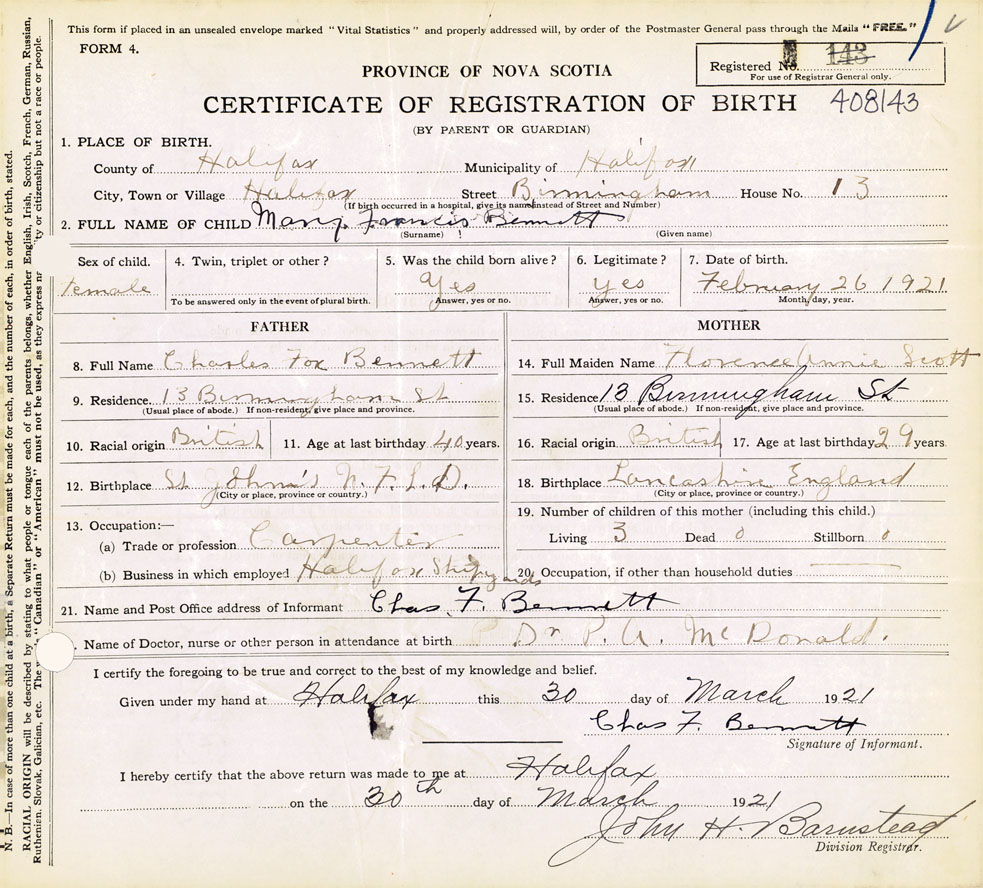 This form if placed in an unsealed envelope marked "Vital Statistics" and properly addressed will, by order of the Postmaster General pass through the Mails "FREE."
FORM 4.
Registered No. 143
For use of Registrar General only.
PROVINCE OF NOVA SCOTIA
CERTIFICATE OF REGISTRATION OF BIRTH 408143
(BY PARENT OR GUARDIAN)
1. PLACE OF BIRTH.
County of Halifax Municipality of Halifax
City, Town or Village Halifax Street Birmingham House No. 13
(If birth occurred in a hospital, give its name instead of Street and Number)
2. FULL NAME OF CHILD Mary Francis Bennett
(Surname) (Given name)
Sex of child. 4. Twin, triplet or other? 5. Was the child born alive? 6. Legitimate? 7. Date of birth.
Female Yes yes February 26 1921
To be answered only in the event of plural birth. Answer, yes or no. Answer, yes or no. Month, day, year.
FATHER MOTHER
8. Full Name Charles Fox Bennett 14. Full Maiden Name Florence Annie Scott
9. Residence. 13 Birmingham St 15. Residence 13 Birmingham St
(Usual place of abode.) If non-resident, give place and province. (Usual place of abode.) If non-resident, give place and province.
10. Racial origin British 11. Age at last birthday 40 years. 16. Racial origin British 17. Age at last birthday 29 years
12. Birthplace St John's N.F.L.D. 18. Birthplace Lancashire England
(City or place, province or country.) (City or place, province or country.)
13. Occupation:— 19. Number of children of this mother (including this child.)
(a) Trade or profession Carpenter Living 3 Dead 0 Stillborn 0
(b) Business in which employed Halifax Shipyards 20. Occupation, if other than household duties
21. Name and Post Office address of Informant Chas. F. Bennett
. Name of Doctor, nurse or other person in attendance at birth Dr P. A. McDonald.
I certify the foregoing to be true and correct to the best of my knowledge and belief.
Given under my hand at Halifax this 30 day of March 1921
Chas F. Bennett
Signature of Informant.
I hereby certify that the above return was made to me at Halifax
on the 30th day of March 1921
John H. Barnstead
Division Registrar.
N. B.—In case of more than one child at a birth, a Separate Return must be made for each, and the number of each, in order of birth, stated.
RACIAL ORIGIN will be described by stating to what people or tongue each of the parents belongs, whether English, Irish, Scotch, French, German, Russian,
Ruthenian, Slovak, Galician, etc. The "Canadian" or "American" must not be used, as they express ty or citizenship but not a race or people.